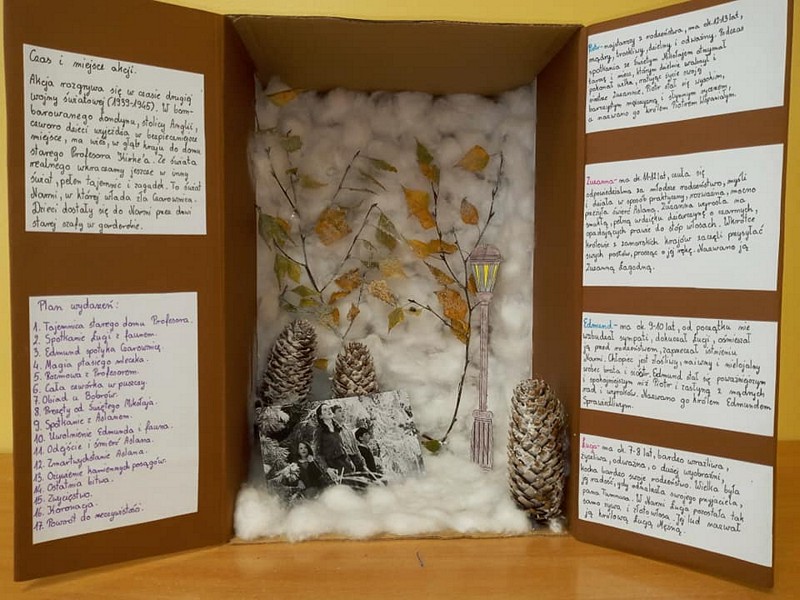 Czas i miejsce akcji.
Akcja rozgrywa się w czasie drugiej
wojny światowej (1939-1945). W bom-
bardowanego Londynu, stolicy Anglii,
czworo dzieci wyjeżdża w bezpieczniejsze
miejsce, na wieś, w głąb kraju do domu
starego Profesora Kirke'a. Ze świata
realnego wkraczamy jeszcze w inny
świat, pełen tajemnic i zagadek. To świat
Narnii, w której włada zła Czarownica.
Dzieci dostały się do Narnii przez drzwi
starej szafy w garderobie.
Plan wydarzeń:
1. Tajemnica starego domu Profesora.
2. Spotkanie Łucji z faunem.
3. Edmund spotyka Czarownicę.
4. Magia ptasiego mleczka.
5. Rozmowa z Profesorem.
6. Cała czwórka w puszczy.
7. Obiad u Bobrów.
8. Prezęty od Świętego Mikołaja.
9. Spotkanie z Aslanem.
10. Uwolnienie Edmunda i fauna.
11. Odejście i śmierć Aslana.
12. Zmartwychstanie Aslana.
13. Ożywienie kamiennych posągów.
14. Ostatnia bitwa.
15. Zwycięstwo.
16. Koronacja.
17. Powrót do rzeczywistości.
Piotr- najstarszy z rodzeństwa, ma ok. 12-13 lat,
mądry, troskliwy, dzielny i odważny. Podczas
spotkania ze Świętym Mikołajem otrzymał
tarczę i miecz, którym dzielnie walczył i
pokonał wilka, ratując życie swojej
siostrze Zuzannie. Piotr stał się wysokim,
barczystym mężczyzną i słynnym rycerzem,
a nazwano go królem Piotrem Wspaniałym.
Zuzanna- ma ok. 11-12 lat, czuła się
odpowiedzialna za młodsze rodzeństwo, myśli
i działa w sposób praktyczny, rozważna, mocno
przeżyła śmierć Aslana. Zuzanna wyrosła na
smukłą, pełną wdzięku dziewczynę o czarnych,
opadających prawie do stóp włosach. Wkrótce
królowie z zamorskich krajów zaczęli przysyłać
swych posłów, prosząc o jej rękę. Nazwano ją
Zuzanną Łagodną.
Edmund- ma ok. 9-10 lat, od początku nie
wzbudzał sympati, dokuczał Łucji, ośmieszał
ją przed rodzeństwem, zaprzeczał istnieniu
Narni. Chłopiec jest złośliwy, naiwny i nielojalny
wobec brata i sióstr. Edmund stał się poważniejszym
i spokojniejszym niż Piotr i zasłynął z mądrych
rad i wyroków. Nazwano go królem Edmundem
Sprawiedliwym.
Łucja- ma ok. 7-8 lat, bardzo wrażliwa,
życzliwa, odważna, o dużej wyobraźni,
kocha bardzo swoje rodzeństwo. Wielka była
jej radość, gdy odnalazła swojego przyjaciela,
pana Tumnusa. W Narni Łucja pozostała tak
samo żywa i złotowłosa. Jej lud nazwał
ją królową Łucją Mężną.